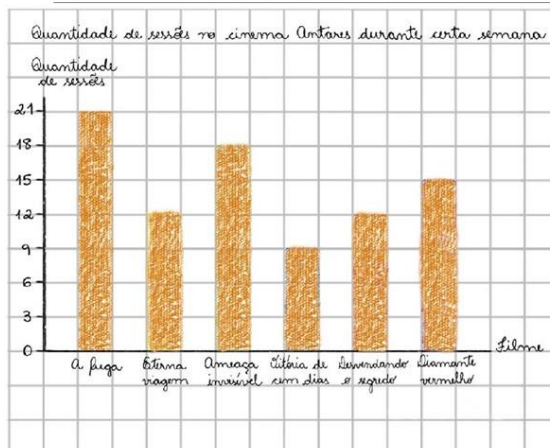 Quantidade de sessões no cinema Antares durante certa semana
Quantidade
de sessões
21
18
15
12
9
6
3
0
Filme
A fuga
Eterna
viagem
Ameaça
invisível
Vitória de
cem dias
Desvendando
o segredo
Diamante
vermelho